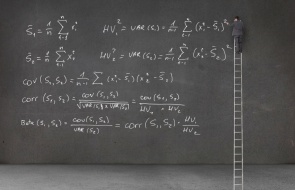 S̄₁ = 1/n Σ xᵢ¹ HV₁² = VAR(S₁) = 1/n Σ (xᵢ¹ - S̄₁)²
S̄₂ = 1/n Σ xᵢ² HV₂² = VAR(S₂) = 1/n Σ (xᵢ² - S̄₂)²
COV(S₁,S₂) = 1/n Σ (xᵢ¹ - S̄₁)(xᵢ² - S̄₂)
corr(S₁,S₂) = COV(S₁,S₂) / √VAR(S₁) × VAR(S₂) = COV(S₁,S₂) / HV₁ × HV₂
Beta(S₁,S₂) = COV(S₁,S₂) / VAR(S₂) = corr(S₁,S₂) · HV₁ / HV₂